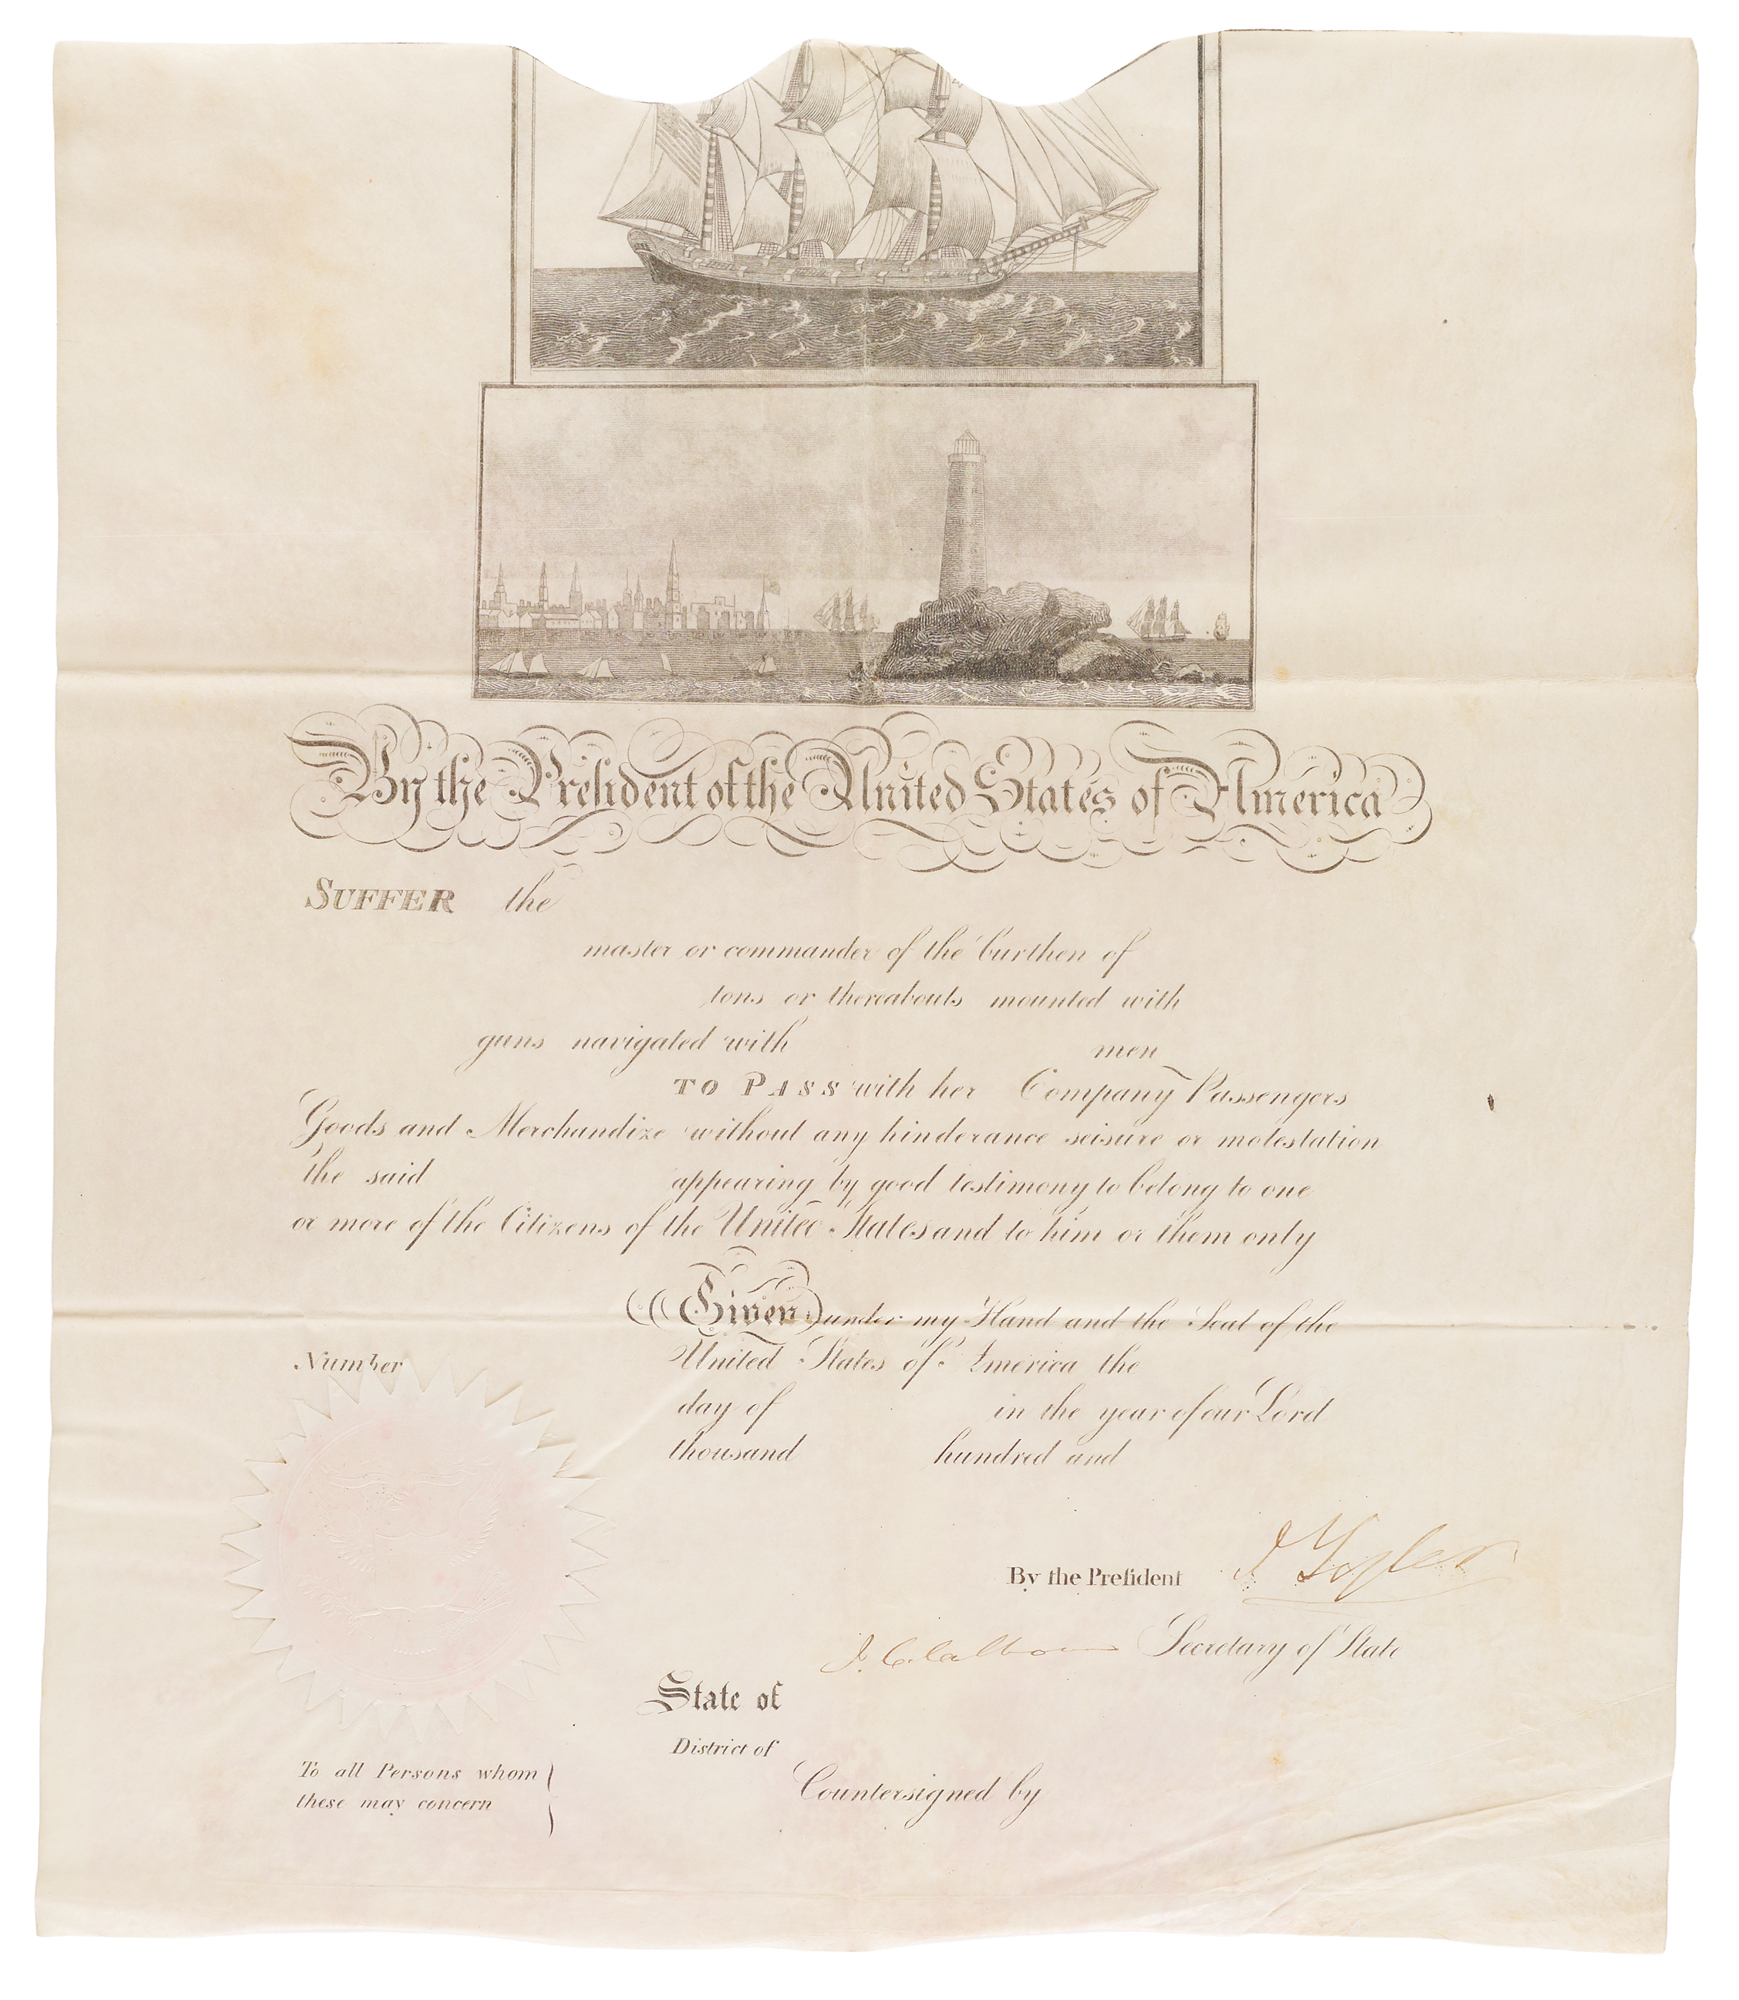 By the President of the United States of America
SUFFER the
master or commander of the burthen of
tons or thereabouts mounted with
guns navigated with men
TO PASS with her Company Passengers
Goods and Merchandize without any hinderance seisure or molestation
the said appearing by good testimony to belong to one
or more of the Citizens of the United States and to him or them only
Given under my Hand and the Seal of the
Number United States of America the
day of in the year of our Lord
thousand hundred and
By the Preſident J Tyler
J. C. Calhoun Secretary of State
State of
District of
To all Persons whom
these may concern
Countersigned by